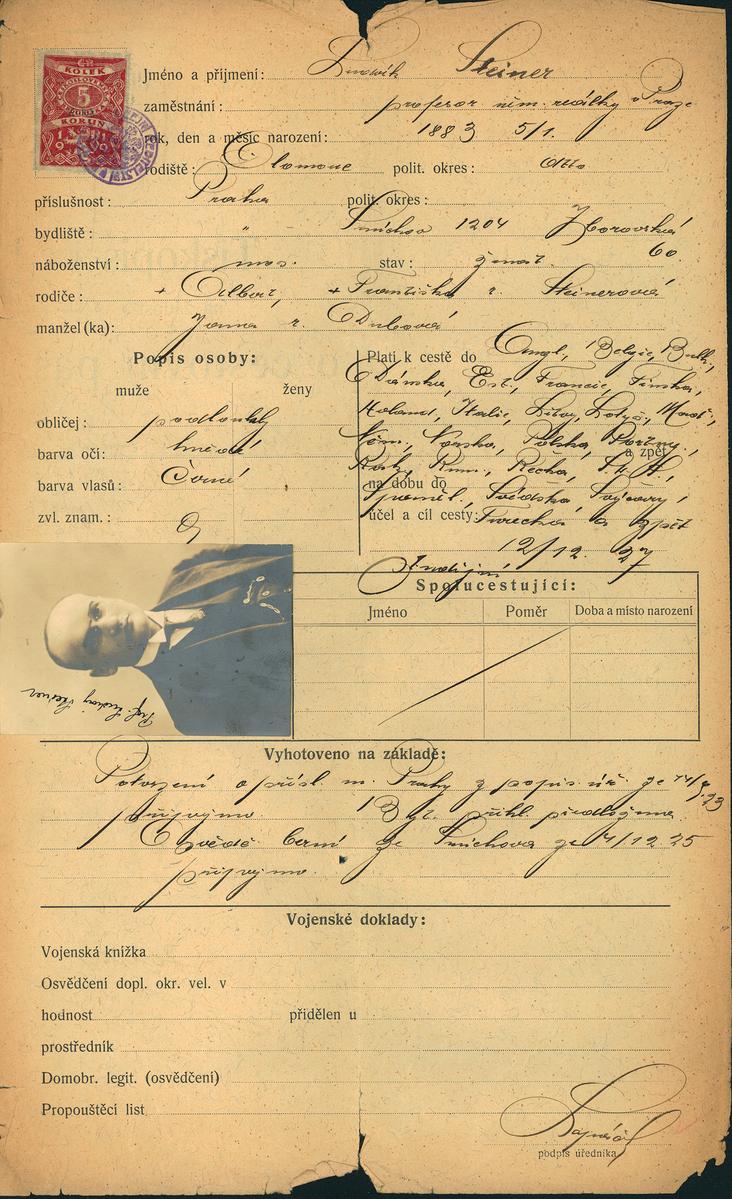 KOLEK
5
KORUN
Jméno a příjmení: Ludwik Steiner
zaměstnání: profesor něm. reálky v Praze
rok, den a měsíc narození: 1883 5/1.
rodiště: Olomouc polit. okres: dtto
příslušnost: Praha polit. okres:
bydliště: " Smíchov 1204 Zborovská
60
náboženství: mos. stav: ženat.
rodiče: + Albert, + Františka r. Steinerová
manžel (ka): Janna r. Dubová
Popis osoby: Platí k cestě do Angl., Belgie, Bulh.,
muže ženy Dánska, Est., Francie, Finska,
obličej: podlouhlý Holand., Italie, Litvy, Lotyš., Maď.,
barva očí: hnědé Něm., Norska, Polska, Portug., a zpět
Raks., Rum., Řecka, S.H.S.,
barva vlasů: Černé na dobu do
Španěl., Švédska, Švýcary,
zvl. znam.: 0 účel a cíl cesty: Turecka a zpět
12/12. 27
Spolucestující:
Jméno Poměr Doba a místo narození
Prof. Ludwig Steiner
Vyhotoveno na základě:
Potvrzení o přísl. m. Prahy z popis. úř. ze
23
Smíchova ze 4/12 25
Vojenské doklady:
Vojenská knížka
Osvědčení dopl. okr. vel. v
hodnost přidělen u
prostředník
Domobr. legit. (osvědčení)
Propouštěcí list
podpis úředníka